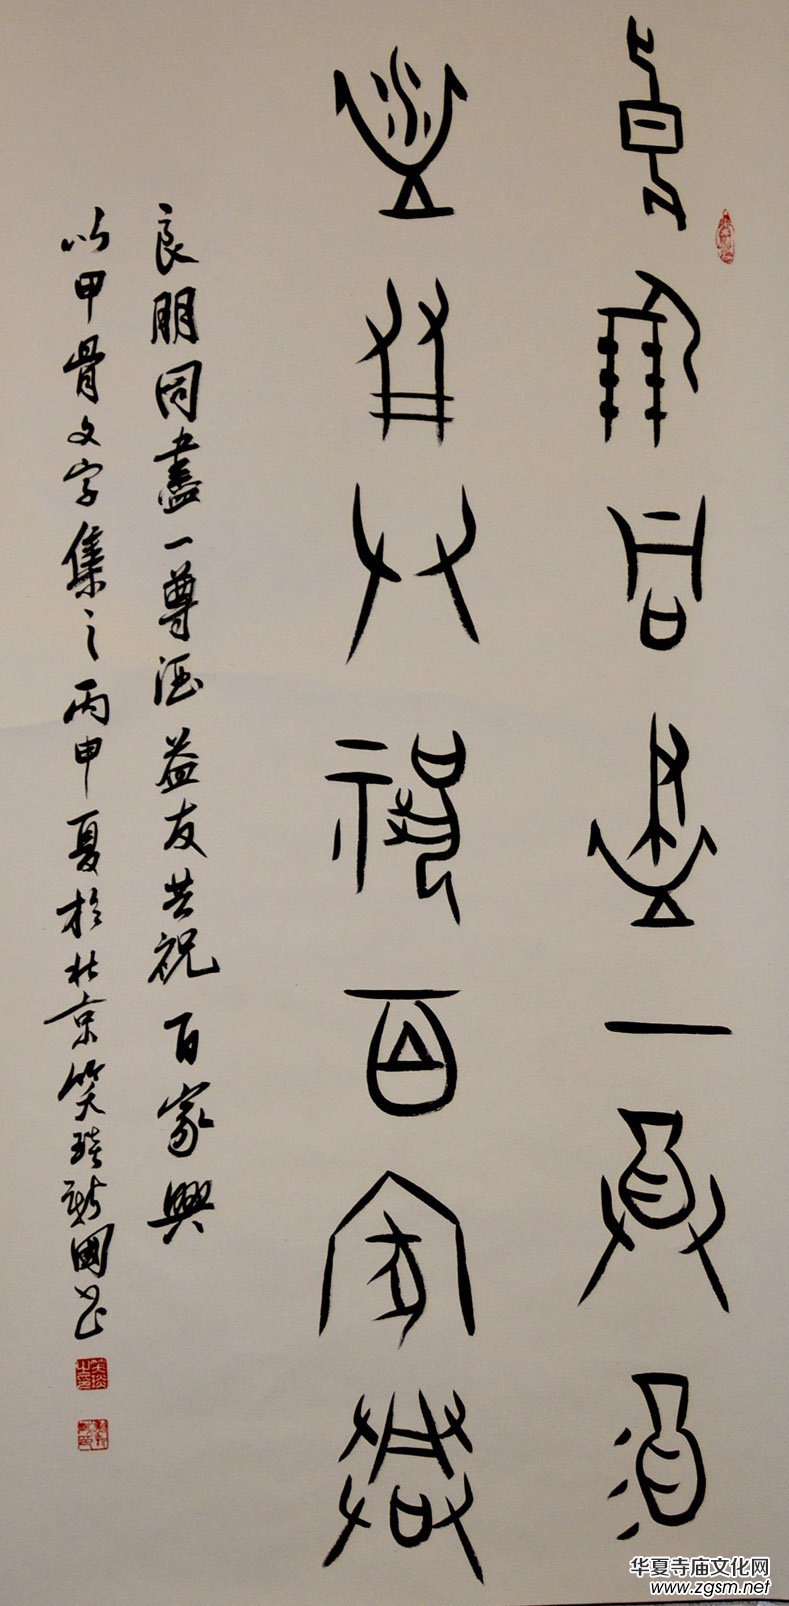 良朋同盡一尊酒
益友共祝百家興
良朋同盡一尊酒益友共祝百家興
以甲骨文字集之丙申夏於北京笑琰新國書
华夏寺庙文化网
www.zgsm.net